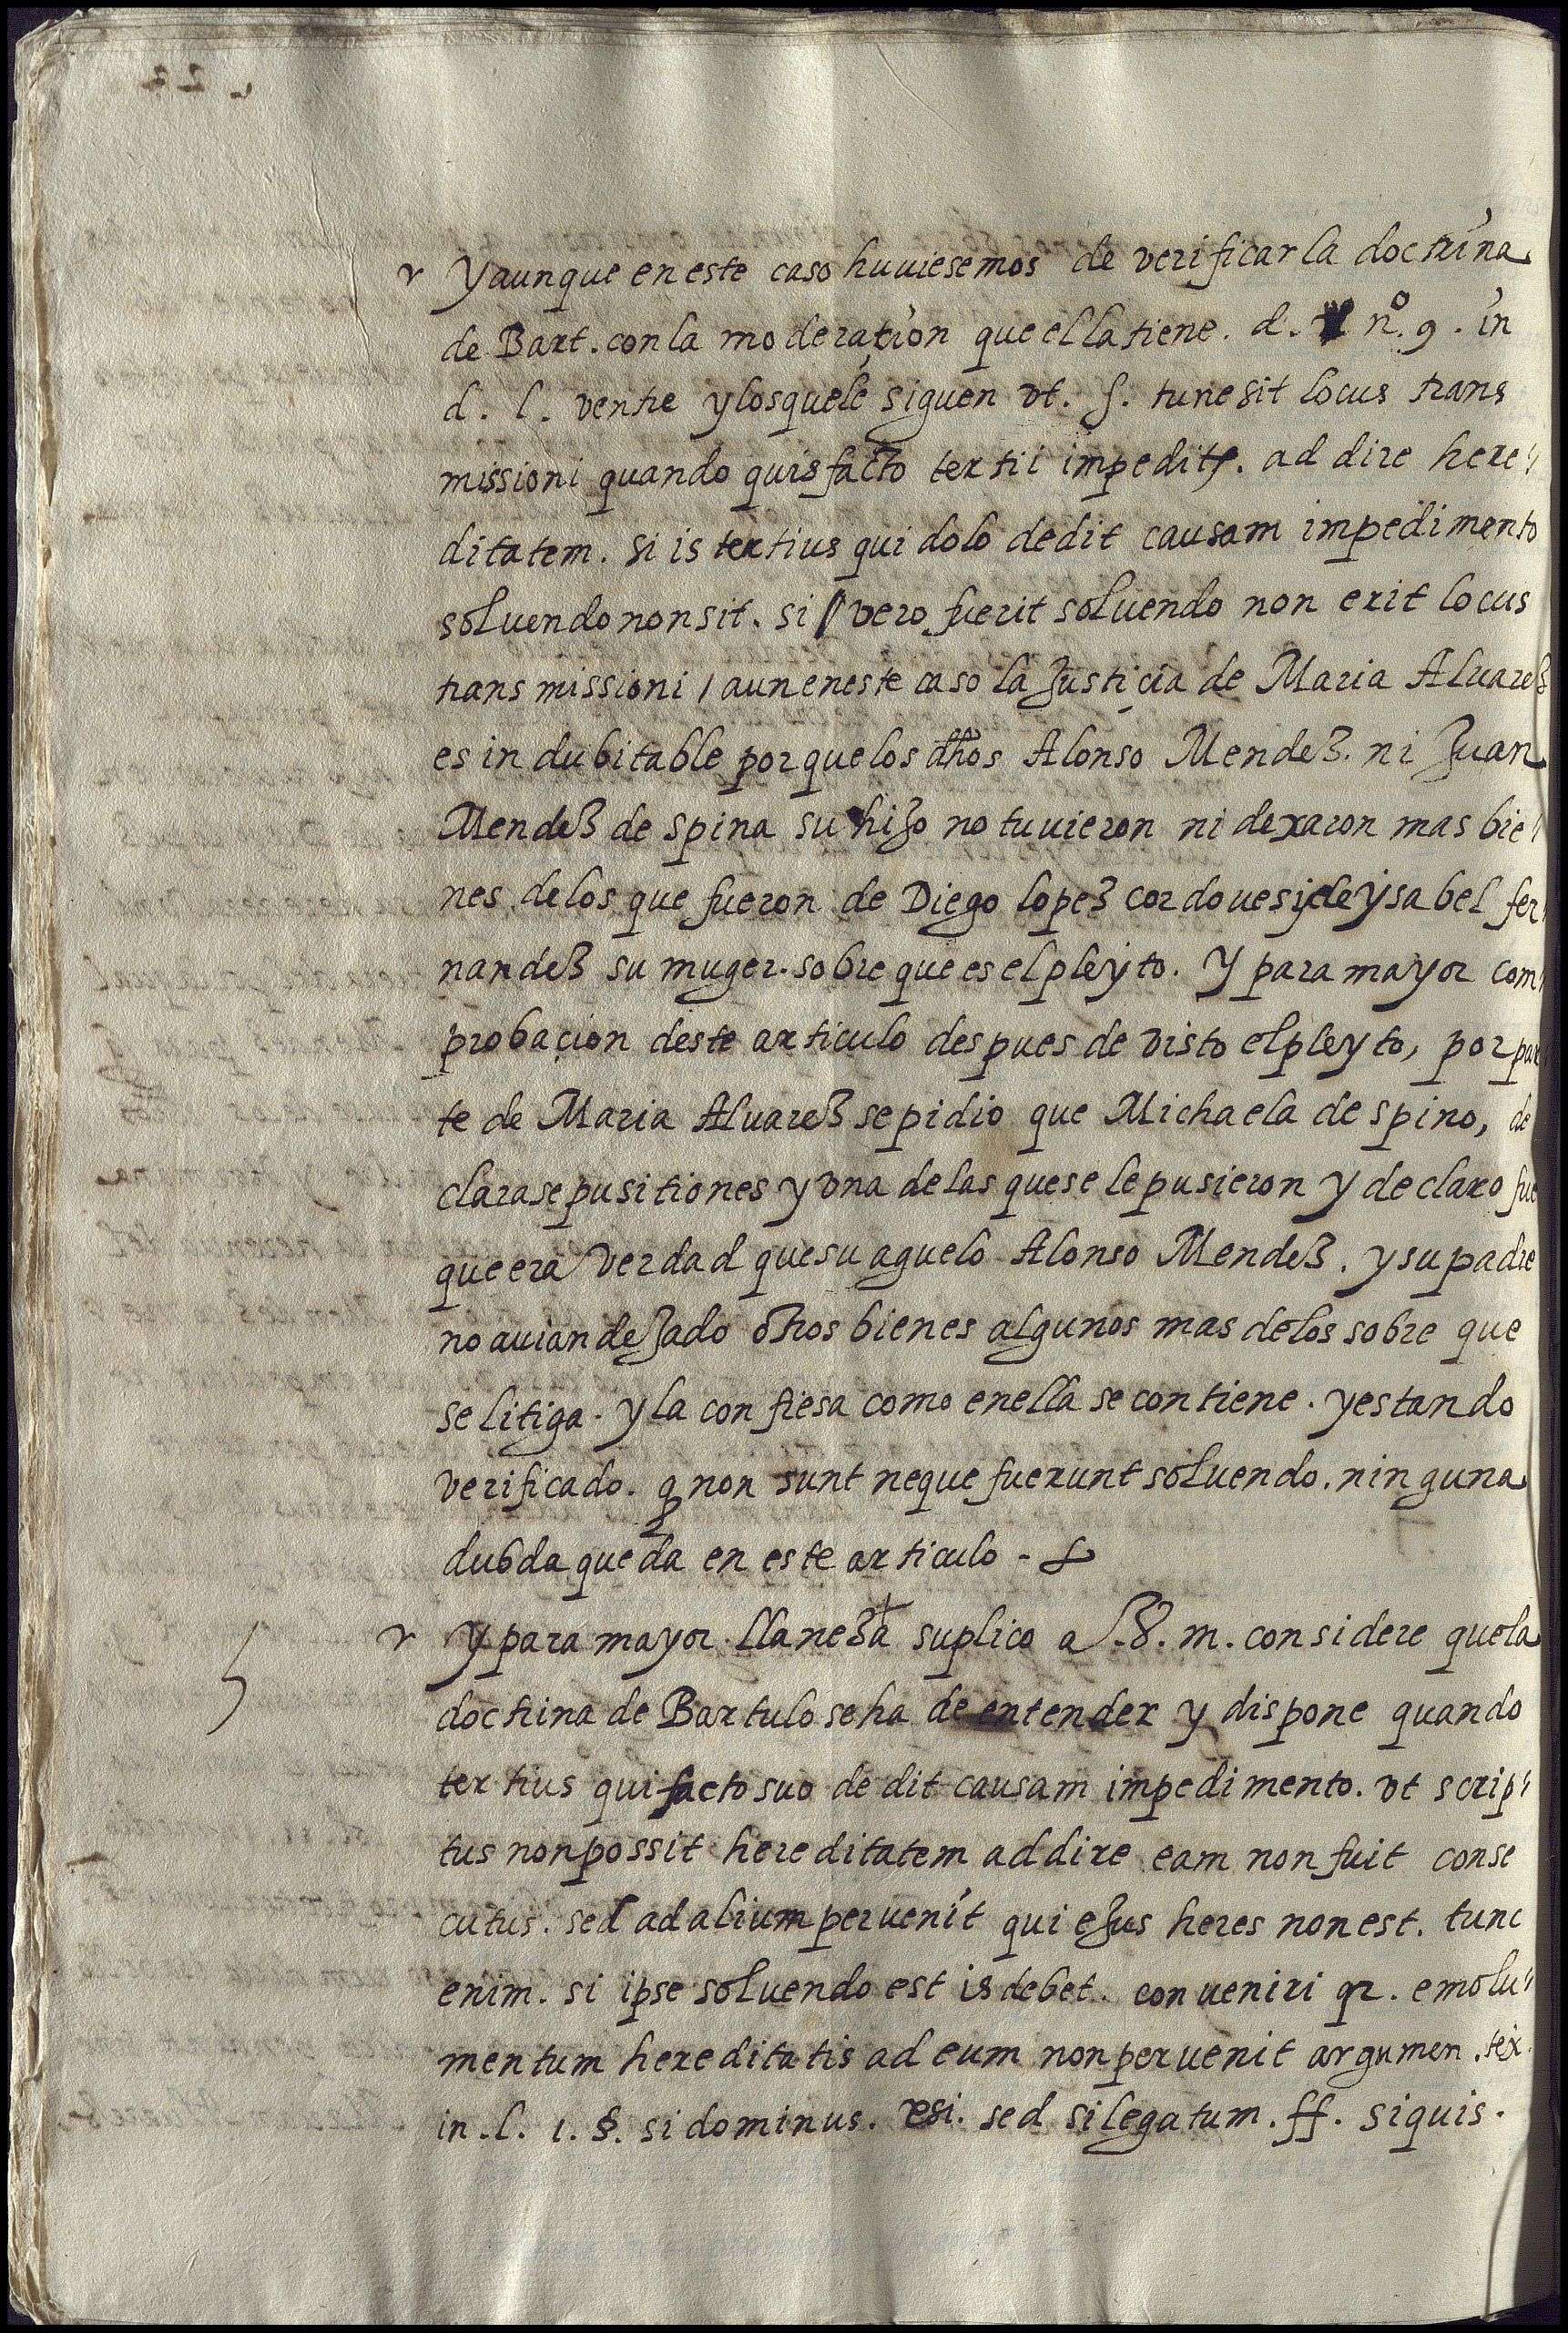 Y aunque en este caso huuiesemos de verificar la doctrina
de Bart. con la moderation que ella tiene. d. nº. 9. in
d. l. ventre y los que le siguen vt. s. tunc sit locus trans
missioni quando quis facto tertii impedit. addire here"
ditatem. si is tertius qui dolo dedit causam impedimento
soluendo non sit. si vero fuerit soluendo non erit locus
trans missioni / aun en este caso la Justiçia de Maria Aluarez
es indubitable porque los dhos Alonso Mendez. ni Juan
Mendez de spina su hijo no tuuieron ni dexaron mas bie"
nes de los que fueron de Diego lopez cordoues y de ysabel fer"
nandez su muger. sobre que es el pleyto. Y para mayor com"
probaçion deste articulo despues de visto el pleyto, por par"
te de Maria Aluarez se pidio que Michaela de spino, de
clarase pusitiones y vna de las que se le pusieron y declaro fue
que era verdad que su aguelo Alonso Mendez. y su padre
no auian dejado otros bienes algunos mas de los sobre que
se litiga. y la confiesa como en ella se contiene. y estando
verificado. q non sunt neque fuerunt soluendo. ninguna
dubda queda en este articulo -
Y para mayor llaneza suplico a .m. considere que la
doctrina de Bartulo se ha de entender y dispone quando
tertius qui facto suo dedit causam impedimento. vt scrip"
tus non possit hereditatem addire eam non fuit conse
cutus. sed ad alium peruenit qui ejus heres non est. tunc
enim. si ipse soluendo est is debet. conueniri qr. emolu"
mentum hereditatis ad eum non peruenit argumen. tex.
in. l. 1. §. si dominus. sed si legatum. ff. si quis.